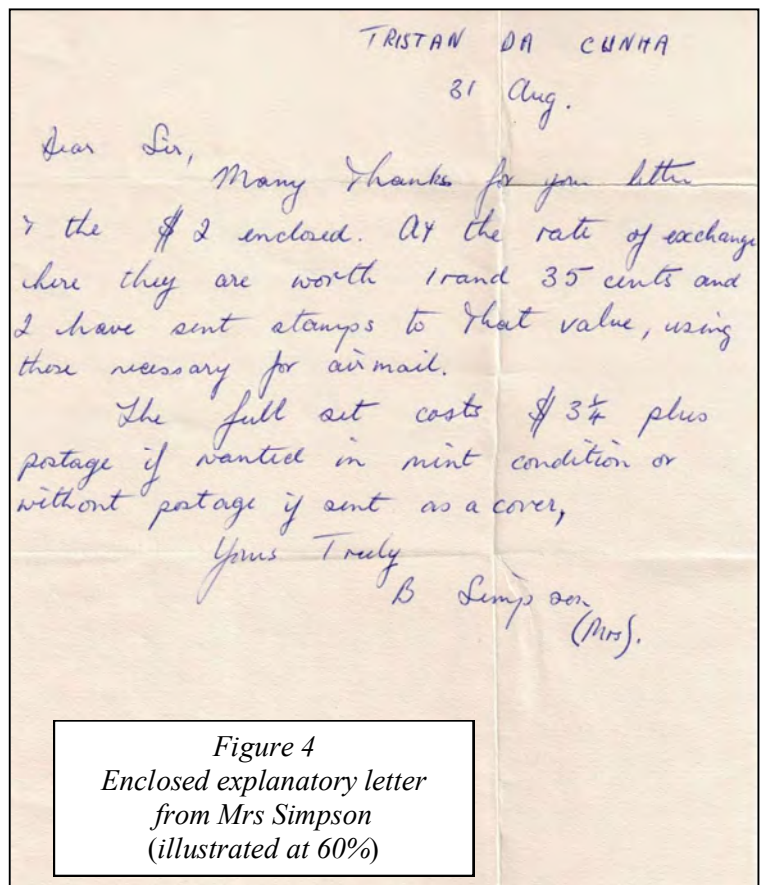 TRISTAN DA CUNHA
31 Aug.
Dear Sir,
Many Thanks for your letter
& the $2 enclosed. At the rate of exchange
here they are worth 1 rand 35 cents and
I have sent stamps to that value, using
those necessary for airmail.
The full set costs $3¼ plus
postage if wanted in mint condition or
without postage if sent as a cover,
Yours Truly
B Simpson
(Mrs).
Figure 4
Enclosed explanatory letter
from Mrs Simpson
(illustrated at 60%)